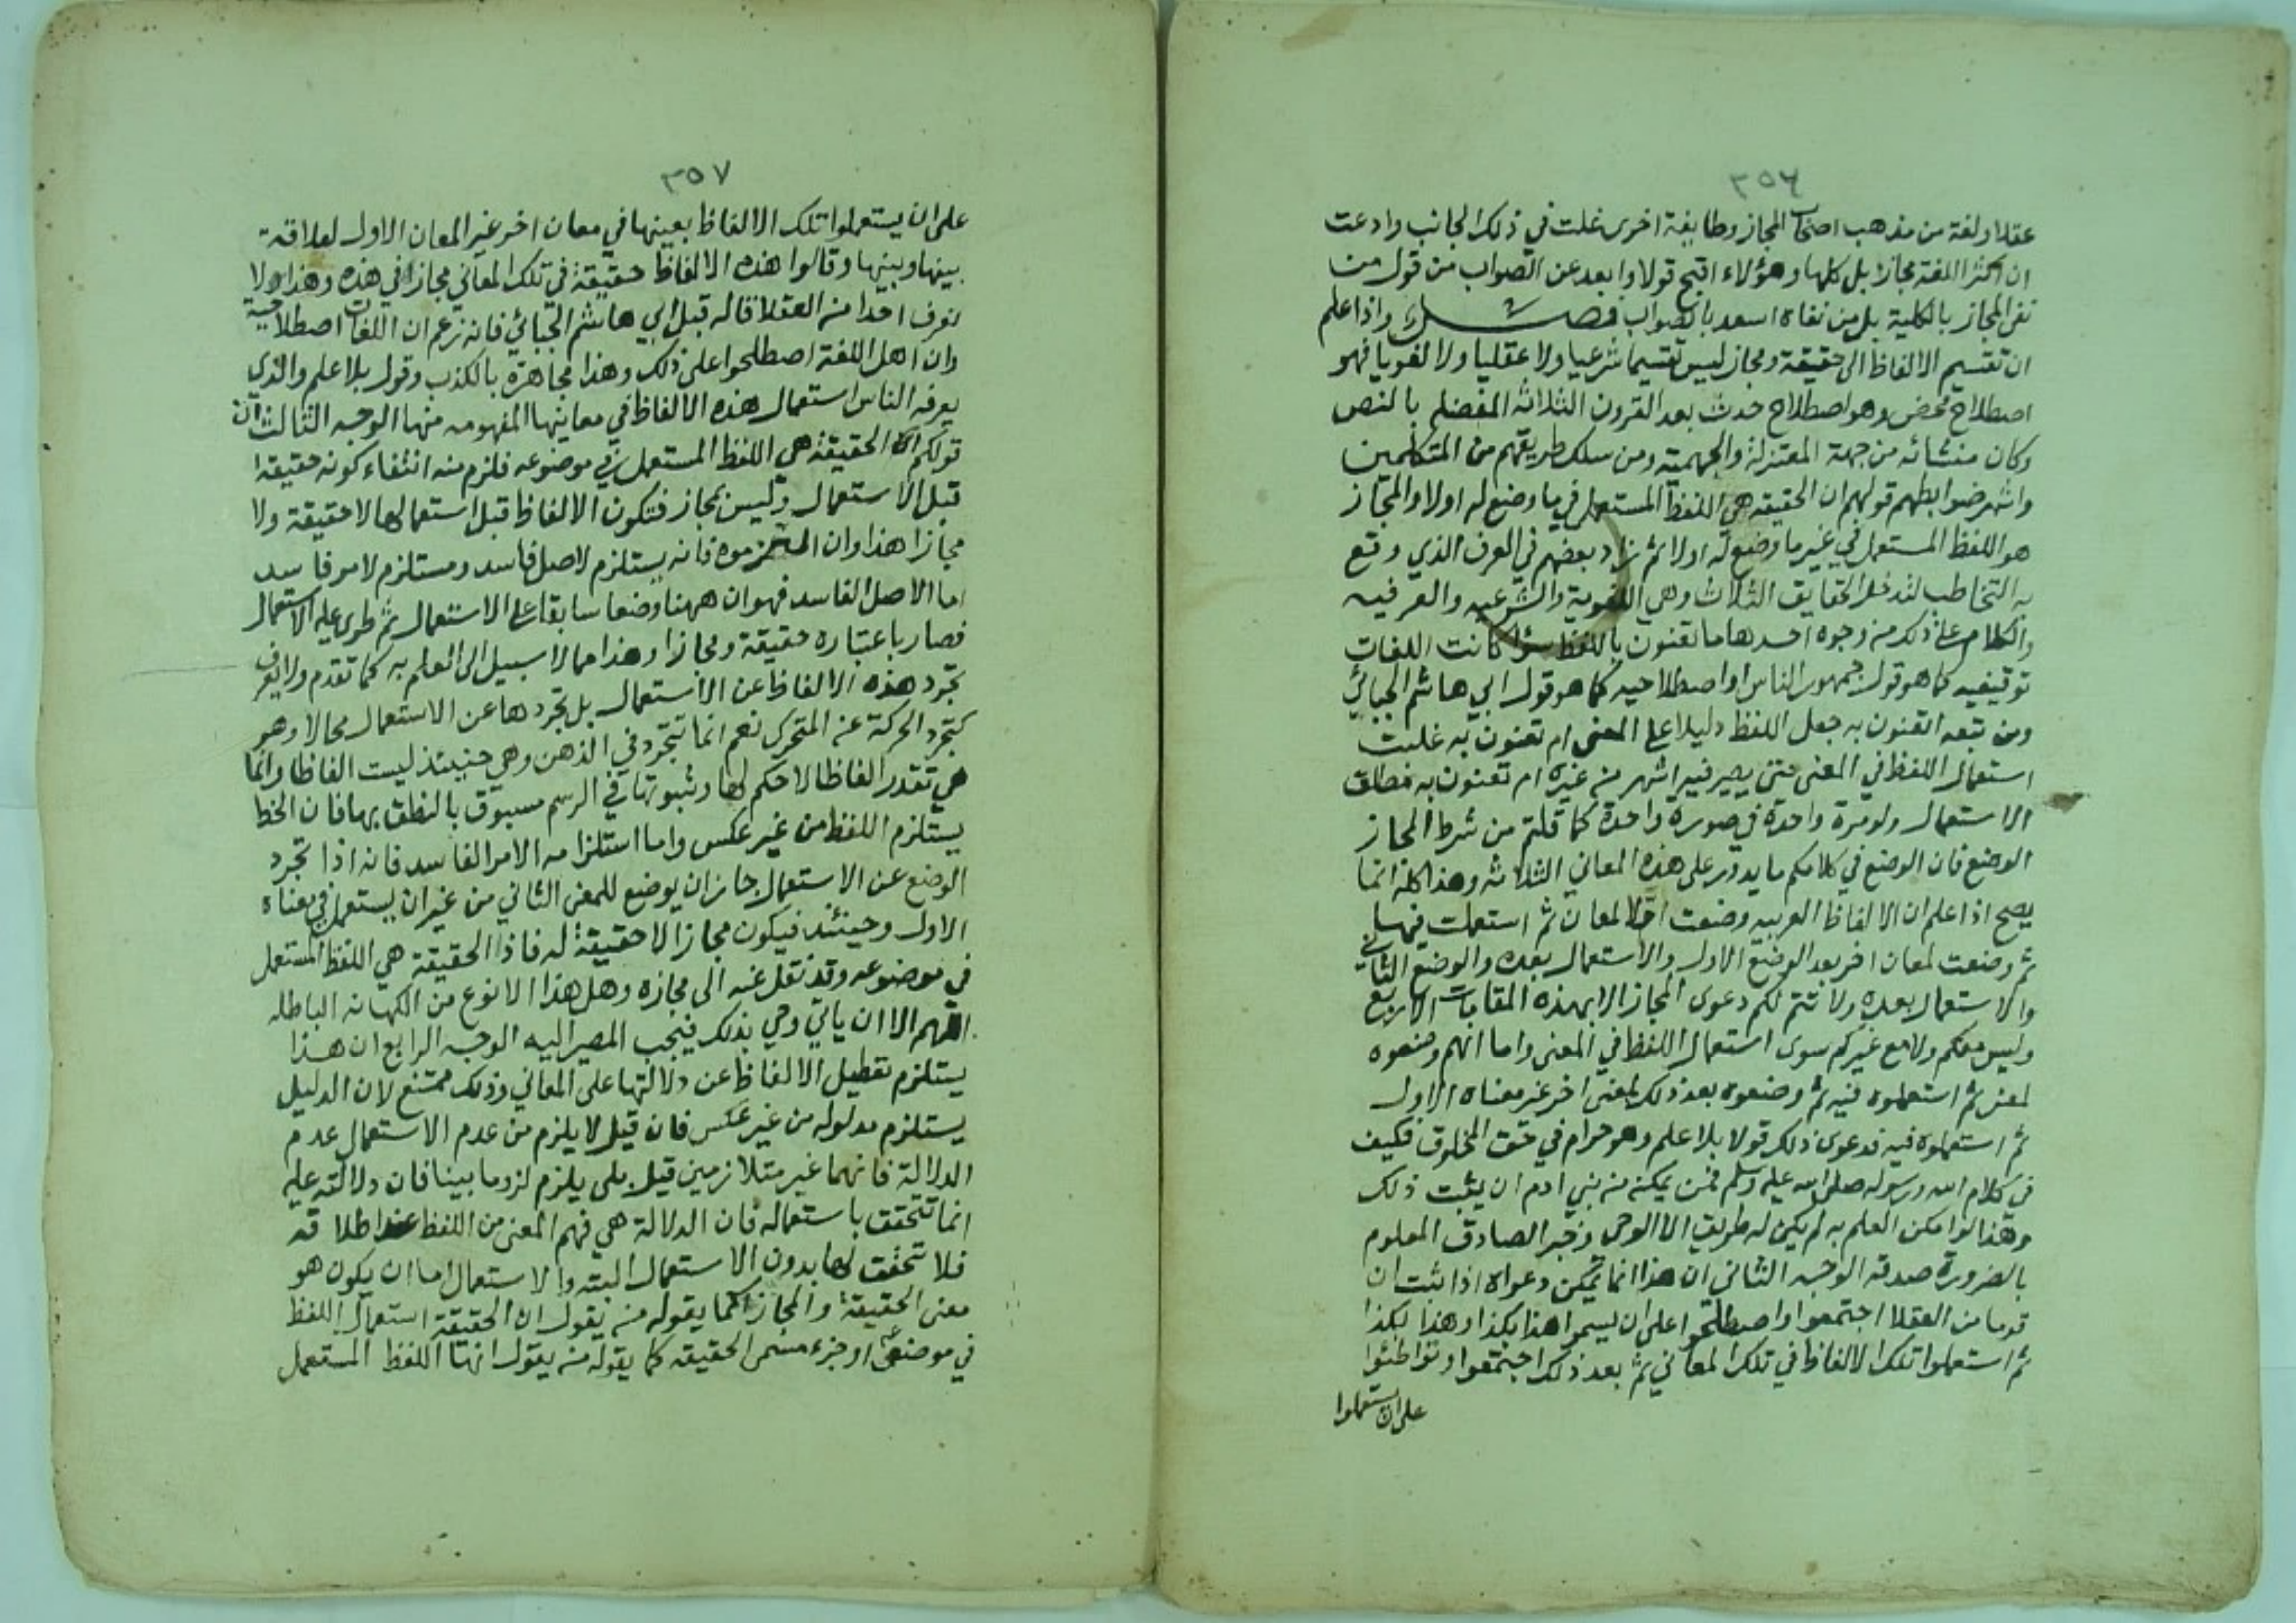 ٣٥٦
عقلا ولغة من مذهب اصحاب المجاز وطايفة اخرى غلت في ذلك الجانب وادعت
ان اكثر اللغة مجازا بل كلها وهؤلاء اقبح قولا وابعد عن الصواب من قول من
نفى المجاز بالكلية بل من نفاه اسعد بالصواب فصل واذا علم
ان تقسيم الالفاظ الى حقيقة ومجاز ليس تقسيما شرعيا ولا عقليا ولا لغويا فهو
اصطلاح محض وهو اصطلاح حدث بعد القرون الثلاثه المفضله بالنص
وكان منشائه من جهة المعتزلة والجهمية ومن سلك طريقهم من المتكلمين
واشهر ضوابطهم قولهم ان الحقيقه هي اللفظ المستعمل فيما وضع له اولا والمجاز
هو اللفظ المستعمل في غير ما وضع له اولا ثم زاد بعضهم في العرف الذي وقع
به التخاطب لتدخل الحقايق الثلاث وهي اللغوية والشرعيه والعرفيه
والكلام على ذلك من وجوه احدها ما تعنون باللفظ سواء كانت اللغات
توقيفيه كما هو قول جمهور الناس او اصطلاحيه كما هو قول ابي هاشم الجبائي
ومن تبعه اتعنون به جعل اللفظ دليلا على المعنى ام تعنون به غلبت
استعمال اللفظ في المعنى حتى يصير فيه اشهر من غيره ام تعنون به مطلق
الاستعمال ولو مرة واحدة في صورة واحدة كما قلتم من شرط المجاز
الوضع فان الوضع في كلامكم ما يدور على هذه المعاني الثلاثه وهذا كله انما
يصح اذا علم ان الالفاظ العربيه وضعت اولا لمعان ثم استعملت فيها
ثم وضعت لمعان اخر بعد الوضع الاول والاستعمال بعده والوضع الثاني
والاستعمال بعده ولا تتم لكم دعوى المجاز الا بهذه المقامات الاربع
وليس معكم ولا مع غيركم سوى استعمال اللفظ في المعنى واما انهم وضعوه
لمعنى ثم استعملوه فيه ثم وضعوه بعد ذلك لمعنى اخر غير معناه الاول
ثم استعملوه فيه فدعوى ذلك قولا بلا علم وهو حرام في حق المخلوق فكيف
في كلام الله ورسوله صلى الله عليه وسلم فمن يمكنه من بني ادم ان يثبت ذلك
وهذا لو امكن العلم به لم يكن له طريق الا الوحى وخبر الصادق المعلوم
بالضرورة صدقه الوجه الثاني ان هذا انما يمكن دعواه اذا ثبت ان
قوما من العقلا اجتمعوا واصطلحوا على ان يسموا هذا بكذا وهذا بكذا
ثم استعملوا تلك الالفاظ في تلك المعاني ثم بعد ذلك اجتمعوا وتواطئوا
على ان يستعملوا
٣٥٧
على ان يستعملوا تلك الالفاظ بعينها في معان اخر غير المعان الاول لعلاقة
بينها وبينها وقالوا هذه الالفاظ حقيقة في تلك المعاني مجازا في هذه وهذا ولا
نعرف احدا من العقلا قاله قبل ابي هاشم الجبائي فانه زعم ان اللغات اصطلاحية
وان اهل اللغة اصطلحوا على ذلك وهذا مجاهرة بالكذب وقول بلا علم والذي
يعرفه الناس استعمال هذه الالفاظ في معاينها المفهومه منها الوجه الثالث ان
قولكم ان الحقيقة هي اللفظ المستعمل في موضوعه فلزم منه انتفاء كونه حقيقة
قبل الاستعمال وليس بمجاز فتكون الالفاظ قبل استعمالها لا حقيقة ولا
مجازا هذا وان التزموه فانه يستلزم لاصل فاسد ومستلزم لامر فاسد
اما الاصل الفاسد فهو ان ههنا وضعا سابقا على الاستعمال ثم طرى عليه الاستعمال
فصار باعتباره حقيقة ومجازا وهذا مما لا سبيل الى العلم به كما تقدم ولا يعرف
تجرد هذه الالفاظ عن الاستعمال بل تجردها عن الاستعمال محالا وهو
كتجرد الحركة عن المتحرك نعم انما تتجرد في الذهن وهي حينيئذ ليست الفاظا وانما
هي تقدر الفاظا لا حكم لها وثبوتها في الرسم مسبوق بالنطق بها فان الخط
يستلزم اللفظ من غير عكس واما استلزامه الامر الفاسد فانه اذا تجرد
الوضع عن الاستعمال جاز ان يوضع للمعنى الثاني من غير ان يستعمل في معناه
الاول وحينئذ فيكون مجازا لا حقيقة له فاذا الحقيقة هي اللفظ المستعمل
في موضوعه وقد نقل عنه الى مجازه وهل هذا الا نوع من الكهانه الباطله
اللهم الا ان ياتي وحي بذلك فيجب المصير اليه الوجه الرابع ان هذا
يستلزم تعطيل الالفاظ عن دلالتها على المعاني وذلك ممتنع لان الدليل
يستلزم مدلوله من غير عكس فان قيل لا يلزم من عدم الاستعمال عدم
الدلالة فانهما غير متلازمين قيل بلى يلزم لزوما بينا فان دلالته عليه
انما تتحقق باستعماله فان الدلالة هي فهم المعنى من اللفظ عند اطلاقه
فلا تحقق لها بدون الاستعمال البته والاستعمال اما ان يكون هو
معنى الحقيقة والمجاز كما يقوله من يقول ان الحقيقة استعمال اللفظ
في موضعه او جزء مسمى الحقيقه كما يقوله من يقول انها اللفظ المستعمل